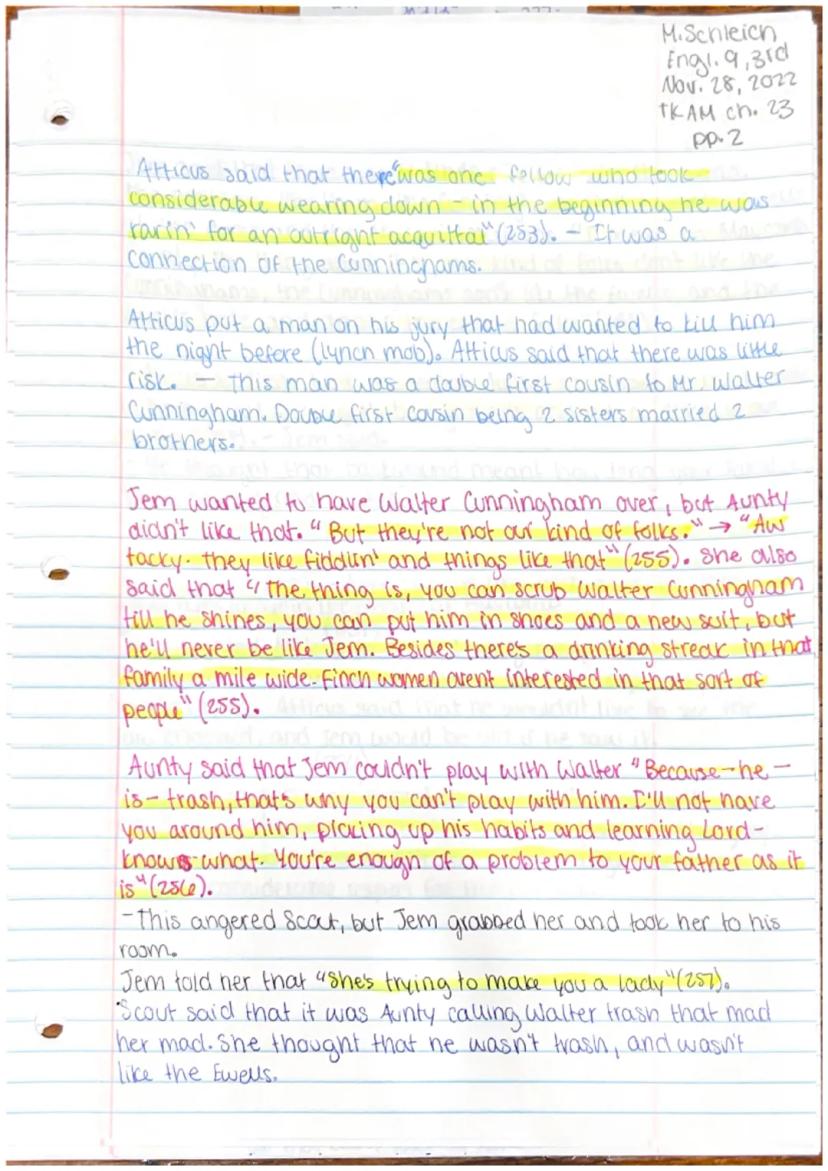 M.Schleich
Engl. 9, 3rd
Nov. 28, 2022
TKAM ch. 23
pp. 2
Atticus said that there "was one fellow who took
considerable wearing down - in the beginning he was
rarin' for an outright acquittal" (253). - It was a
connection of the Cunninghams.
Atticus put a man on his jury that had wanted to kill him
the night before (lynch mob). Atticus said that there was little
risk. - This man was a double first cousin to Mr. Walter
Cunningham. Double first cousin being 2 sisters married 2
brothers.
Jem wanted to have Walter Cunningham over, but Aunty
didn't like that. "But they're not our kind of folks." → "Aw
tacky. they like fiddlin' and things like that" (255). She also
said that "The thing is, you can scrub Walter Cunningham
till he shines, you can put him in shoes and a new suit, but
he'll never be like Jem. Besides there's a drinking streak in that
family a mile wide. Finch women arent interested in that sort of
people" (255).
Aunty said that Jem couldn't play with Walter "Because-he-
is-trash, that's why you can't play with him. I'll not have
you around him, picking up his habits and learning Lord-
knows what. You're enough of a problem to your father as it
is" (256).
-This angered Scout, but Jem grabbed her and took her to his
room.
Jem told her that "She's trying to make you a lady" (257).
Scout said that it was Aunty calling Walter trash that mad
her mad. She thought that he wasn't trash, and wasn't
like the Ewells.